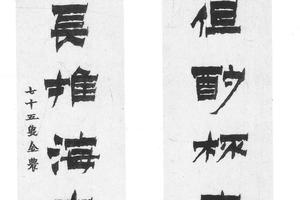 但酌杯
長推海
七十五叟金農